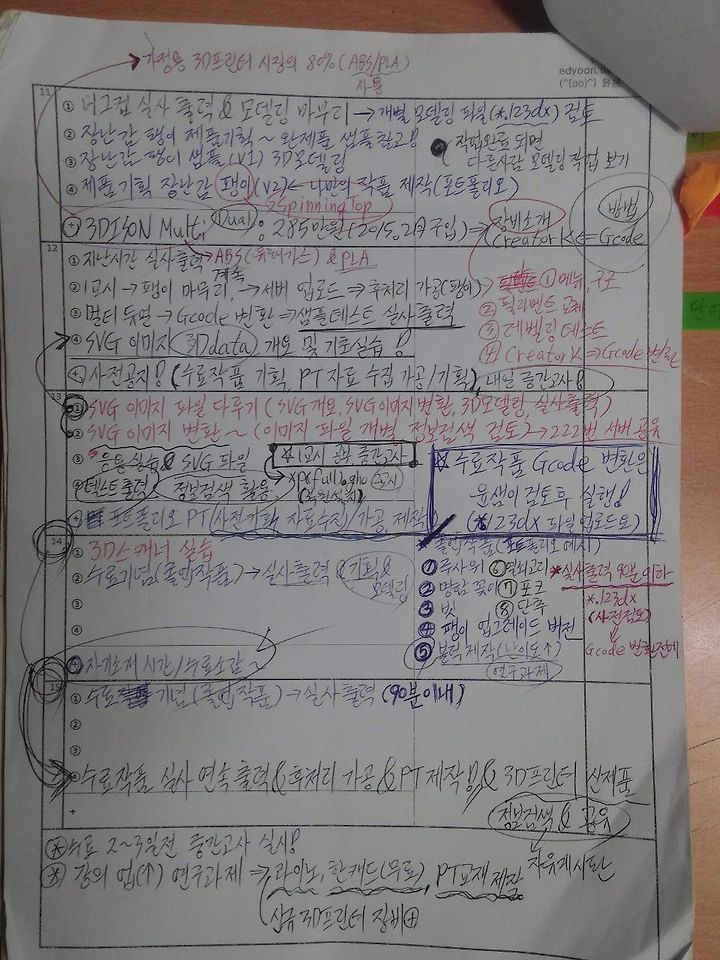 가정용 3D프린터 시장의 80% (ABS/PLA)
사용
edyoon.
(^(oo)^) 윤
11
① 머그컵 실사 출력 & 모델링 마무리 → 개별 모델링 파일(*.123dx) 검토
② 장난감 팽이 제품기획 ~ 완제품 샘플 참고!
작업완료 되면
③ 장난감 팽이 샘플(v1) 3D모델링
다른사람 모델링 작업 보기
④ 제품기획 장난감 팽이(v2) ← 나만의 작품 제작(포트폴리오)
SpinningTop
방법
3DISON Multi Dual : 285만원(2015.2月 구입) ⇒ 장비소개
(CreatorK <= Gcode
12
① 지난시간 실사출력 → ABS(유해가스) & PLA
계속
② 1교시 → 팽이 마무리, → 서버 업로드 → 후처리 가공(팽이)
① 메뉴, 구조
② 필라멘트 교체
③ 멀티 듀얼 → Gcode 변환 ⇒ 샘플테스트 실사출력
③ 레벨링 테스트
④ SVG 이미지 3Ddata 개요 및 기초실습!
④ CreatorK ⇒ Gcode 변환
+ 사전공지! (수료작품 기획, PT 자료 수집 가공/기획), 내일 중간고사!
13
① SVG 이미지 파일 다루기 (SVG개요, SVG이미지 변환, 3D모델링, 실사출력)
② SVG 이미지 변환 ~ (이미지 파일 개별 정보검색 검토) → 222번 서버 공유
③ 응용실습 & SVG 파일
*1교시 중간고사
☆ 수료작품 Gcode 변환은
④ 텍스트 출력 정보검색 활용
윤샘이 검토후 실행!
(*.123dx 파일 업로드요)
포트폴리오 PT (사전기획 자료수집/가공 제작)
14
① 3D스캐너 실습
* 졸업작품(포트폴리오 예시)
② 수료기념(졸업작품) → 실사출력 & 기획 & 모델링
① 주사위 ⑥ 열쇠고리
* 실사출력 90분 이하
② 명함 꽂이 ⑦ 포크
*.123dx
③
③ 빗 ⑧ 단추
(사전검토)
④
④ 팽이 업그레이드 버전
Gcode 변환전에
자기소개 시간/수료소감 ~
⑤ 블럭 제작(난이도↑)
(연구과제)
15
① 수료 기념(졸업작품) → 실사출력 (90분이내)
②
③
④ 수료작품 실사 연속 출력 & 후처리 가공 & PT 제작!, & 3D프린터 신제품
+
정보검색 & 공유
자유게시판
* 수료 2~3일전 중간고사 실시!
* 강의 업(↑) 연구과제 ⇒ 라이노, 한캐드(무료), PT교재 제작
신규 3D프린터 장비 +